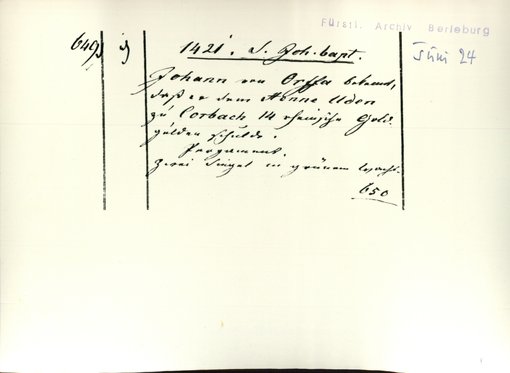 Fürstl. Archiv Berleburg
Juni 24
649
1421. S. Joh. bapt.
Johann von Orffe bekennt,
daß er dem Henne Uden
zu Corbach 14 rheinische Gold-
gulden schulde.
Pergament.
Zwei Siegel in grünem Wachs.
650